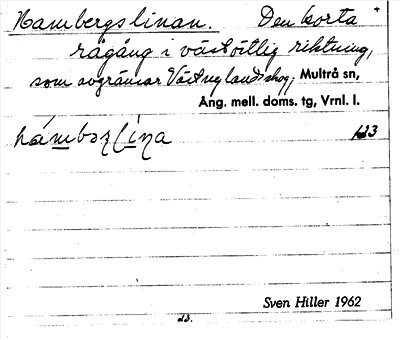 Hambergslinan. Den korta +
rågång i västöstlig riktning,
som avgränsar Västnylandsskog; Multrå sn,
Ang. mell. doms. tg, Vrnl. l.
123
Sven Hiller 1962
23.